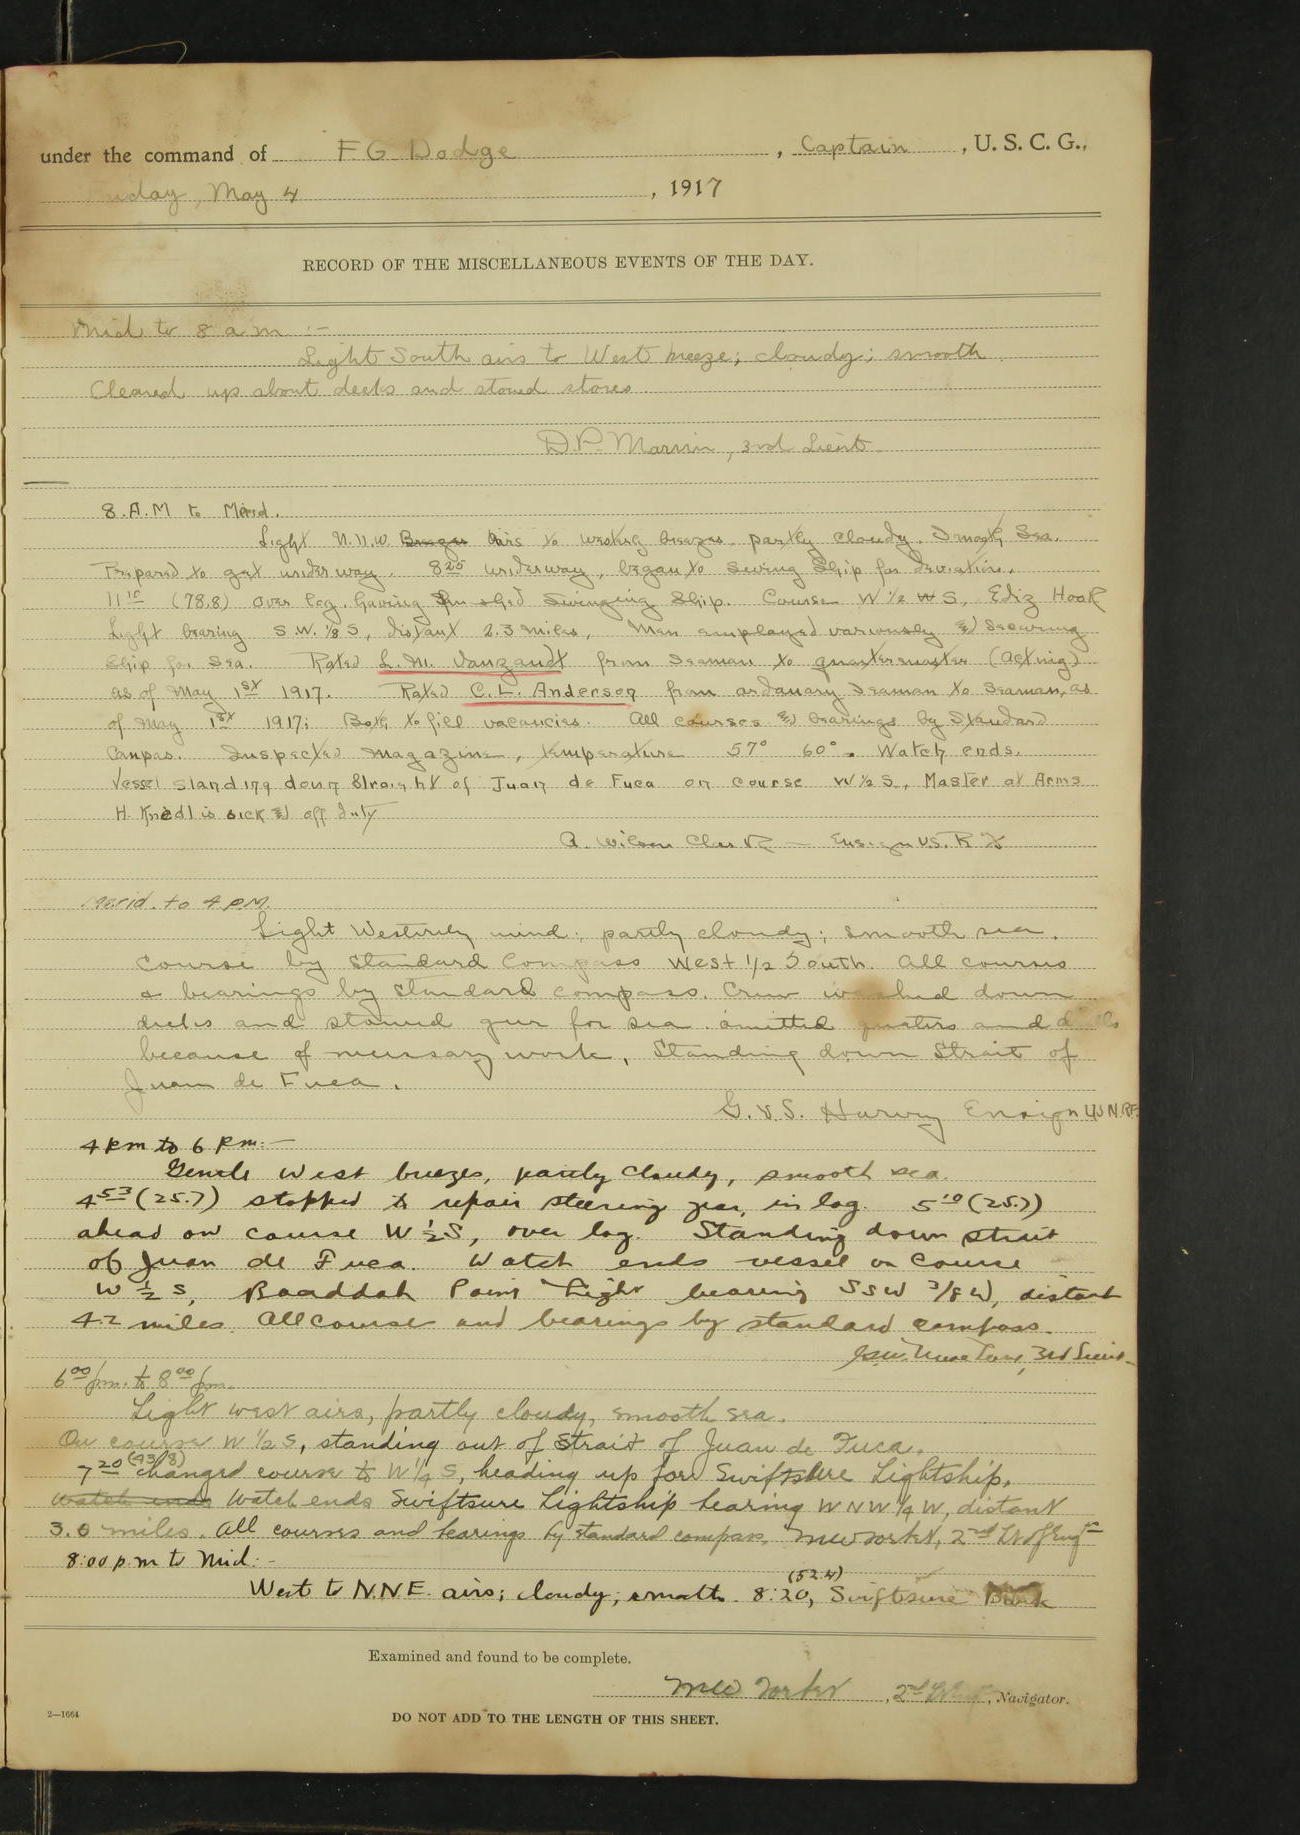 under the command of F G Dodge, Captain, U. S. C. G.,
day, May 4, 1917
RECORD OF THE MISCELLANEOUS EVENTS OF THE DAY.
Mid to 8 a m :-
Light South airs to West breeze; cloudy; smooth
Cleared up about decks and stowed stores
D.P. Marvin, 3rd Lieut.
8. A.M to Merid.
Light N.N.W. Breezes airs to westerly breezes. partly cloudy. Smooth Sea.
Prepared to get underway. 8 25 underway, began to Swing Ship for deviation.
11 15 (78.8) over log. having finished Swinging Ship. Course W 1/2 W S, Ediz Hook
Light bearing S.W. 1/8 S, distant 2.3 miles, Men employed variously & securing
Ship for Sea. Rated L. M. Vanzandt from Seaman to quartermaster (Acting)
as of May 1st 1917. Rated C. L. Anderson from ordanary Seaman to Seaman, as
of May 1st 1917: Both to fill vacancies. All courses & bearings by Standard
Compas. Inspected Magazine, temperature 57° 60°. Watch ends.
Vessel standing down Straight of Juan de Fuca on course W 1/2 S, Master at Arms
H. Knedl is sick & off duty
A. Wilson Clark — Ensign U.S. R F
Merid. to 4 P.M.
Light Westerly wind; partly cloudy; smooth sea.
Course by Standard Compass West 1/2 South. All courses
& bearings by standard compass. Crew washed down
decks and stowed gear for sea. omitted quaters and drills
because of nessary work, Standing down Strait of
Juan de Fuca.
G. V. S. Harvey Ensign USNRF.
4 p m to 6 p m:—
Gentle West breezes, partly cloudy, smooth sea.
4 53 (25.7) stopped to repair steering gear, in log. 5 10 (25.7)
ahead on course W 1/2 S, over log. Standing down strait
of Juan de Fuca. Watch ends vessel on course
W 1/2 S, Baaddah Point Light bearing SSW 3/8 W, distant
4.2 miles. All course and bearings by standard compass.
3rd Lieut.
6 00 p.m. to 8 00 p.m.
Light west airs, partly cloudy, smooth sea.
On course W 1/2 S, standing out of Strait of Juan de Fuca.
7 20 (43.8) changed course to W 1/4 S, heading up for Swiftsure Lightship.
Watch ends Watch ends Swiftsure Lightship bearing WNW 1/4 W, distant
3.0 miles. All courses and bearings by standard compass. 2nd Lt of Eng rs
8:00 p.m to Mid:-
West to N.N.E. airs; cloudy; smooth. 8:20, (52.4) Swiftsure Bank
Examined and found to be complete.
, 2nd Lieut, Navigator.
2—1664
DO NOT ADD TO THE LENGTH OF THIS SHEET.